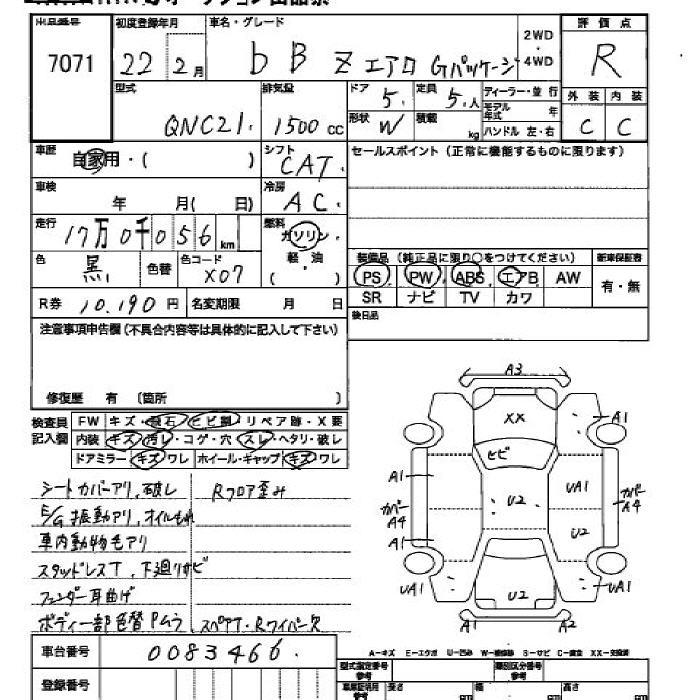 出品番号 初度登録年月 車名・グレード 2WD・4WD 評価点
7071 22 2月 bB Z エアロ Gパッケージ R
型式 QNC21. 排気量 1500 CC ドア 5. 定員 5.人 ディーラー・並行
形状 W 積載 kg モデル年式 年 ハンドル 左・右 外装 C 内装 C
車歴 自家用・( ) シフト CAT. セールスポイント (正常に機能するものに限ります)
車検 年 月( 日) 冷房 AC.
走行 17万0千056km 燃料 ガソリン・軽・油 ( )
色 黒. 色替 色コード X07
装備品 (純正品に限り○をつけてください) 新車保証書
PS PW ABS エアB AW 有・無
SR ナビ TV カワ
R券 10.190円 名変期限 月 日 後日品
注意事項申告欄 (不具合内容等は具体的に記入して下さい)
修復歴 有 〔箇所 〕
検査員記入欄 FW キズ・飛石・ヒビ割・リペア跡・X要
内装 キズ・汚れ・コゲ・穴・スレ・ヘタリ・破レ
ドアミラー キズ・ワレ ホイール・キャップ キズ・ワレ
シートカバーアリ、破レ Rフロア歪み
E/G振動アリ、オイルもれ
車内動物毛アリ
スタッドレスT、下廻りサビ
フェンダー耳曲げ
ボディ一部色替Pムラ スペアT・Rワイパー欠
A3
XX A1
ヒビ
A1 UA1
カバーA4 U2 カバーA4
A1 U2
UA1 U2 UA1
A1 A2
A=キズ E=エクボ U=凹み W=補修跡 S=サビ C=腐食 XX=交換済
車台番号 0083466.
型式指定番号 参考 類別区分番号 参考
登録番号 長さ cm 幅 cm 高さ cm